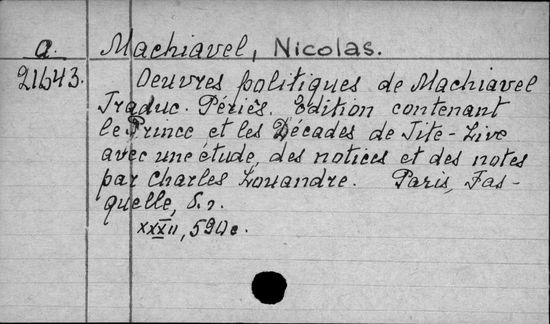 a. Machiavel, Nicolas.
21643. Oeuvres politiques de Machiavel
Traduc. Périès. Edition contenant
le Prince et les Décades de Tite-Live
avec une étude, des notices et des notes
par Charles Louandre. Paris, Fas-
quelle, s.
XXXII, 590